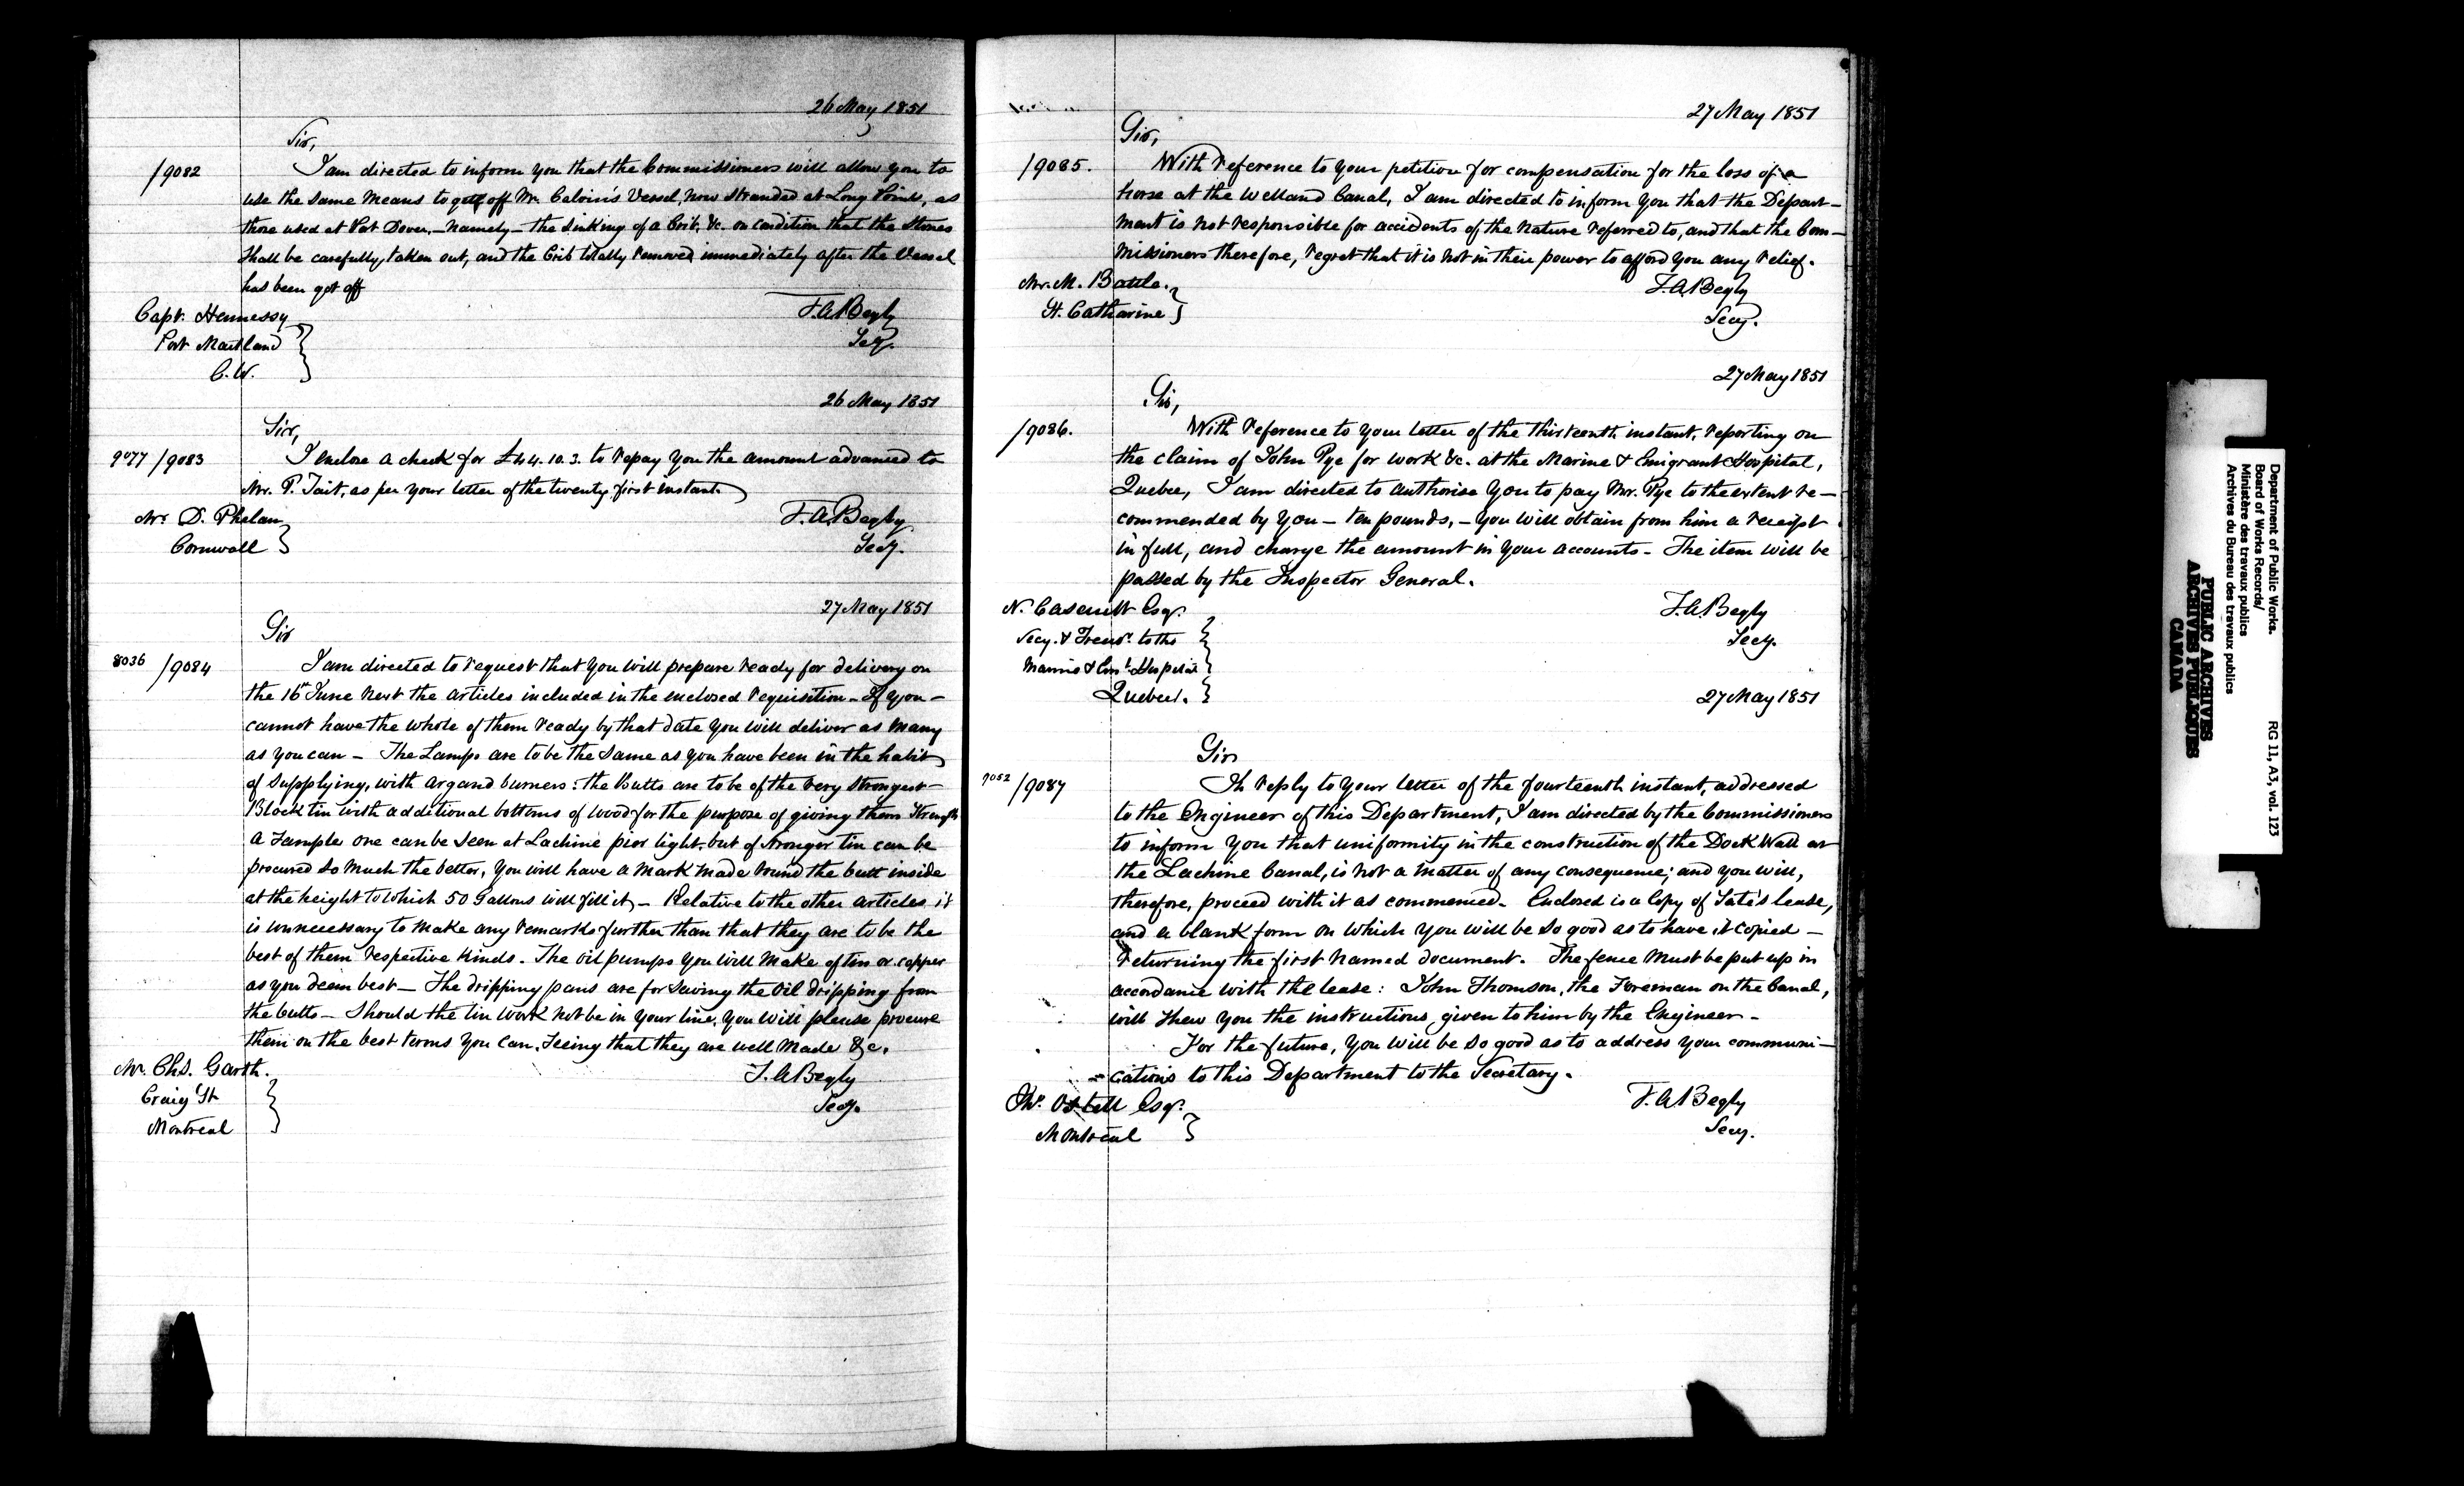 26 May 1851
Sir,
/9082
I am directed to inform you that the Commissioners will allow you to
use the same means to get off Mr. Calvin's Vessel, now stranded at Long Point, as
those used at Port Dover, – namely – the sinking of a Crib, &c. on condition that the Stones
shall be carefully taken out, and the Crib totally removed immediately after the Vessel
has been got off
Capt. Hennessy
Port Maitland
C.W.
F.A. Begly
Secy.
26 May 1851
Sir,
9077/9083
I enclose a check for £44.10.3. to repay you the amount advanced to
Mr. P. Tait, as per your letter of the twenty first instant.
Mr. D. Phelan
Cornwall
F.A. Begly
Secy.
27 May 1851
Sir
8036/9084
I am directed to request that you will prepare ready for delivery on
the 16th June next the articles included in the enclosed requisition – If you –
cannot have the whole of them ready by that date you will deliver as many
as you can – The Lamps are to be the same as you have been in the habit
of supplying, with argand burners: the Butts are to be of the very strongest –
Block tin with additional bottoms of wood for the purpose of giving them strength
A sample one can be seen at Lachine pier light, but if stronger tin can be
procured so much the better, you will have a mark made round the butt inside
at the height to which 50 Gallons will fill it, – Relative to the other articles it
is unnecessary to make any remarks further than that they are to be the
best of their respective kinds. The oil pumps you will make of tin or copper
as you deem best – The dripping pans are for saving the oil dripping from
the butts – Should the tin work not be in your line, you will please procure
them on the best terms you can, seeing that they are well made &c.
Mr. Chs. Garth.
Craig St
Montreal
F.A. Begly
Secy.
27 May 1851
Sir,
/9085.
With reference to your petition for compensation for the loss of a
horse at the Welland Canal, I am directed to inform you that the Depart–
ment is not responsible for accidents of the nature referred to, and that the Com–
missioners therefore, regret that it is not in their power to afford you any relief.
Mr. M. Battle.
St. Catharine
F.A. Begly
Secy.
27 May 1851
Sir,
/9086.
With reference to your letter of the thirteenth instant, reporting on
the claim of John Pye for work &c. at the Marine & Emigrant Hospital,
Quebec, I am directed to authorise you to pay Mr. Pye to the extent re–
commended by you – ten pounds, – you will obtain from him a receipt
in full, and charge the amount in your accounts – The item will be
passed by the Inspector General.
N. Casault Esqr.
Secy. & Treasr. to the
Marine & Emt. Hospital
Quebec.
F.A. Begly
Secy.
27 May 1851
Sir
9052/9087
In reply to your letter of the fourteenth instant, addressed
to the Engineer of this Department, I am directed by the Commissioners
to inform you that uniformity in the construction of the Dock Wall at
the Lachine Canal, is not a matter of any consequence; and you will,
therefore, proceed with it as commenced. Enclosed is a Copy of Tate's lease,
and a blank form on which you will be so good as to have it copied –
returning the first named document. The fence must be put up in
accordance with the lease: John Thomson, the Foreman on the Canal,
will shew you the instructions given to him by the Engineer –
For the future, you will be so good as to address your communi–
–cations to this Department to the Secretary.
Jno. Ostell Esqr.
Montreal
F.A. Begly
Secy.
Department of Public Works.
Board of Works Records/
Ministère des travaux publics
Archives du Bureau des travaux publics
RG 11, A3, vol. 123
PUBLIC ARCHIVES
ARCHIVES PUBLIQUES
CANADA